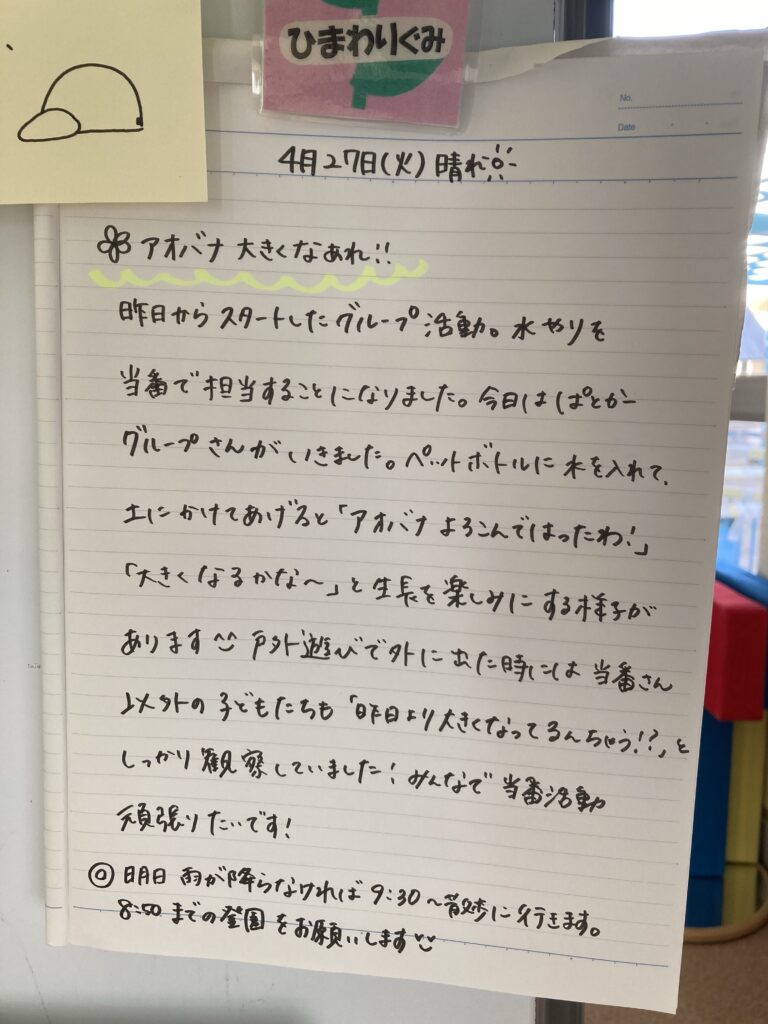 ひまわりぐみ
No.
Date
4月27日(火) 晴れ
アオバナ 大きくなあれ!!
昨日からスタートしたグループ活動。水やりを
当番で担当することになりました。今日はぱとかー
グループさんがいきました。ペットボトルに水を入れて、
土にかけてあげると「アオバナよろこんではったわ!」
「大きくなるかな〜」と生長を楽しみにする様子が
あります 戸外遊びで外に出た時には当番さん
以外の子どもたちも「昨日より大きくなってるんちゃう!?」と
しっかり観察していました!みんなで当番活動
頑張りたいです!
◎ 明日 雨が降らなければ 9:30〜散歩に行きます。
8:50までの登園をお願いします